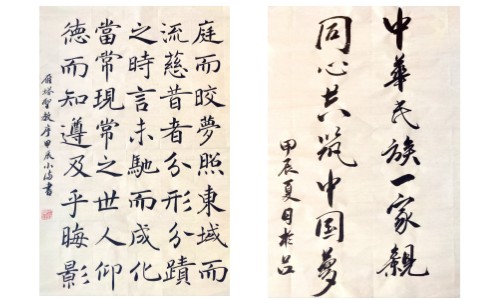 庭而皎夢照東域而
流慈昔者分形分蹟
之時言未馳而成化
當常現常之世人仰
德而知遵及乎晦影
雁塔聖教序甲辰小書
中華民族一家親
同心共筑中国夢
甲辰夏日於吕